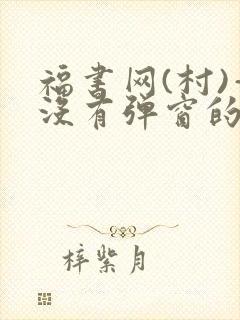 福书网(村)-
没有弹窗的
梓紫月